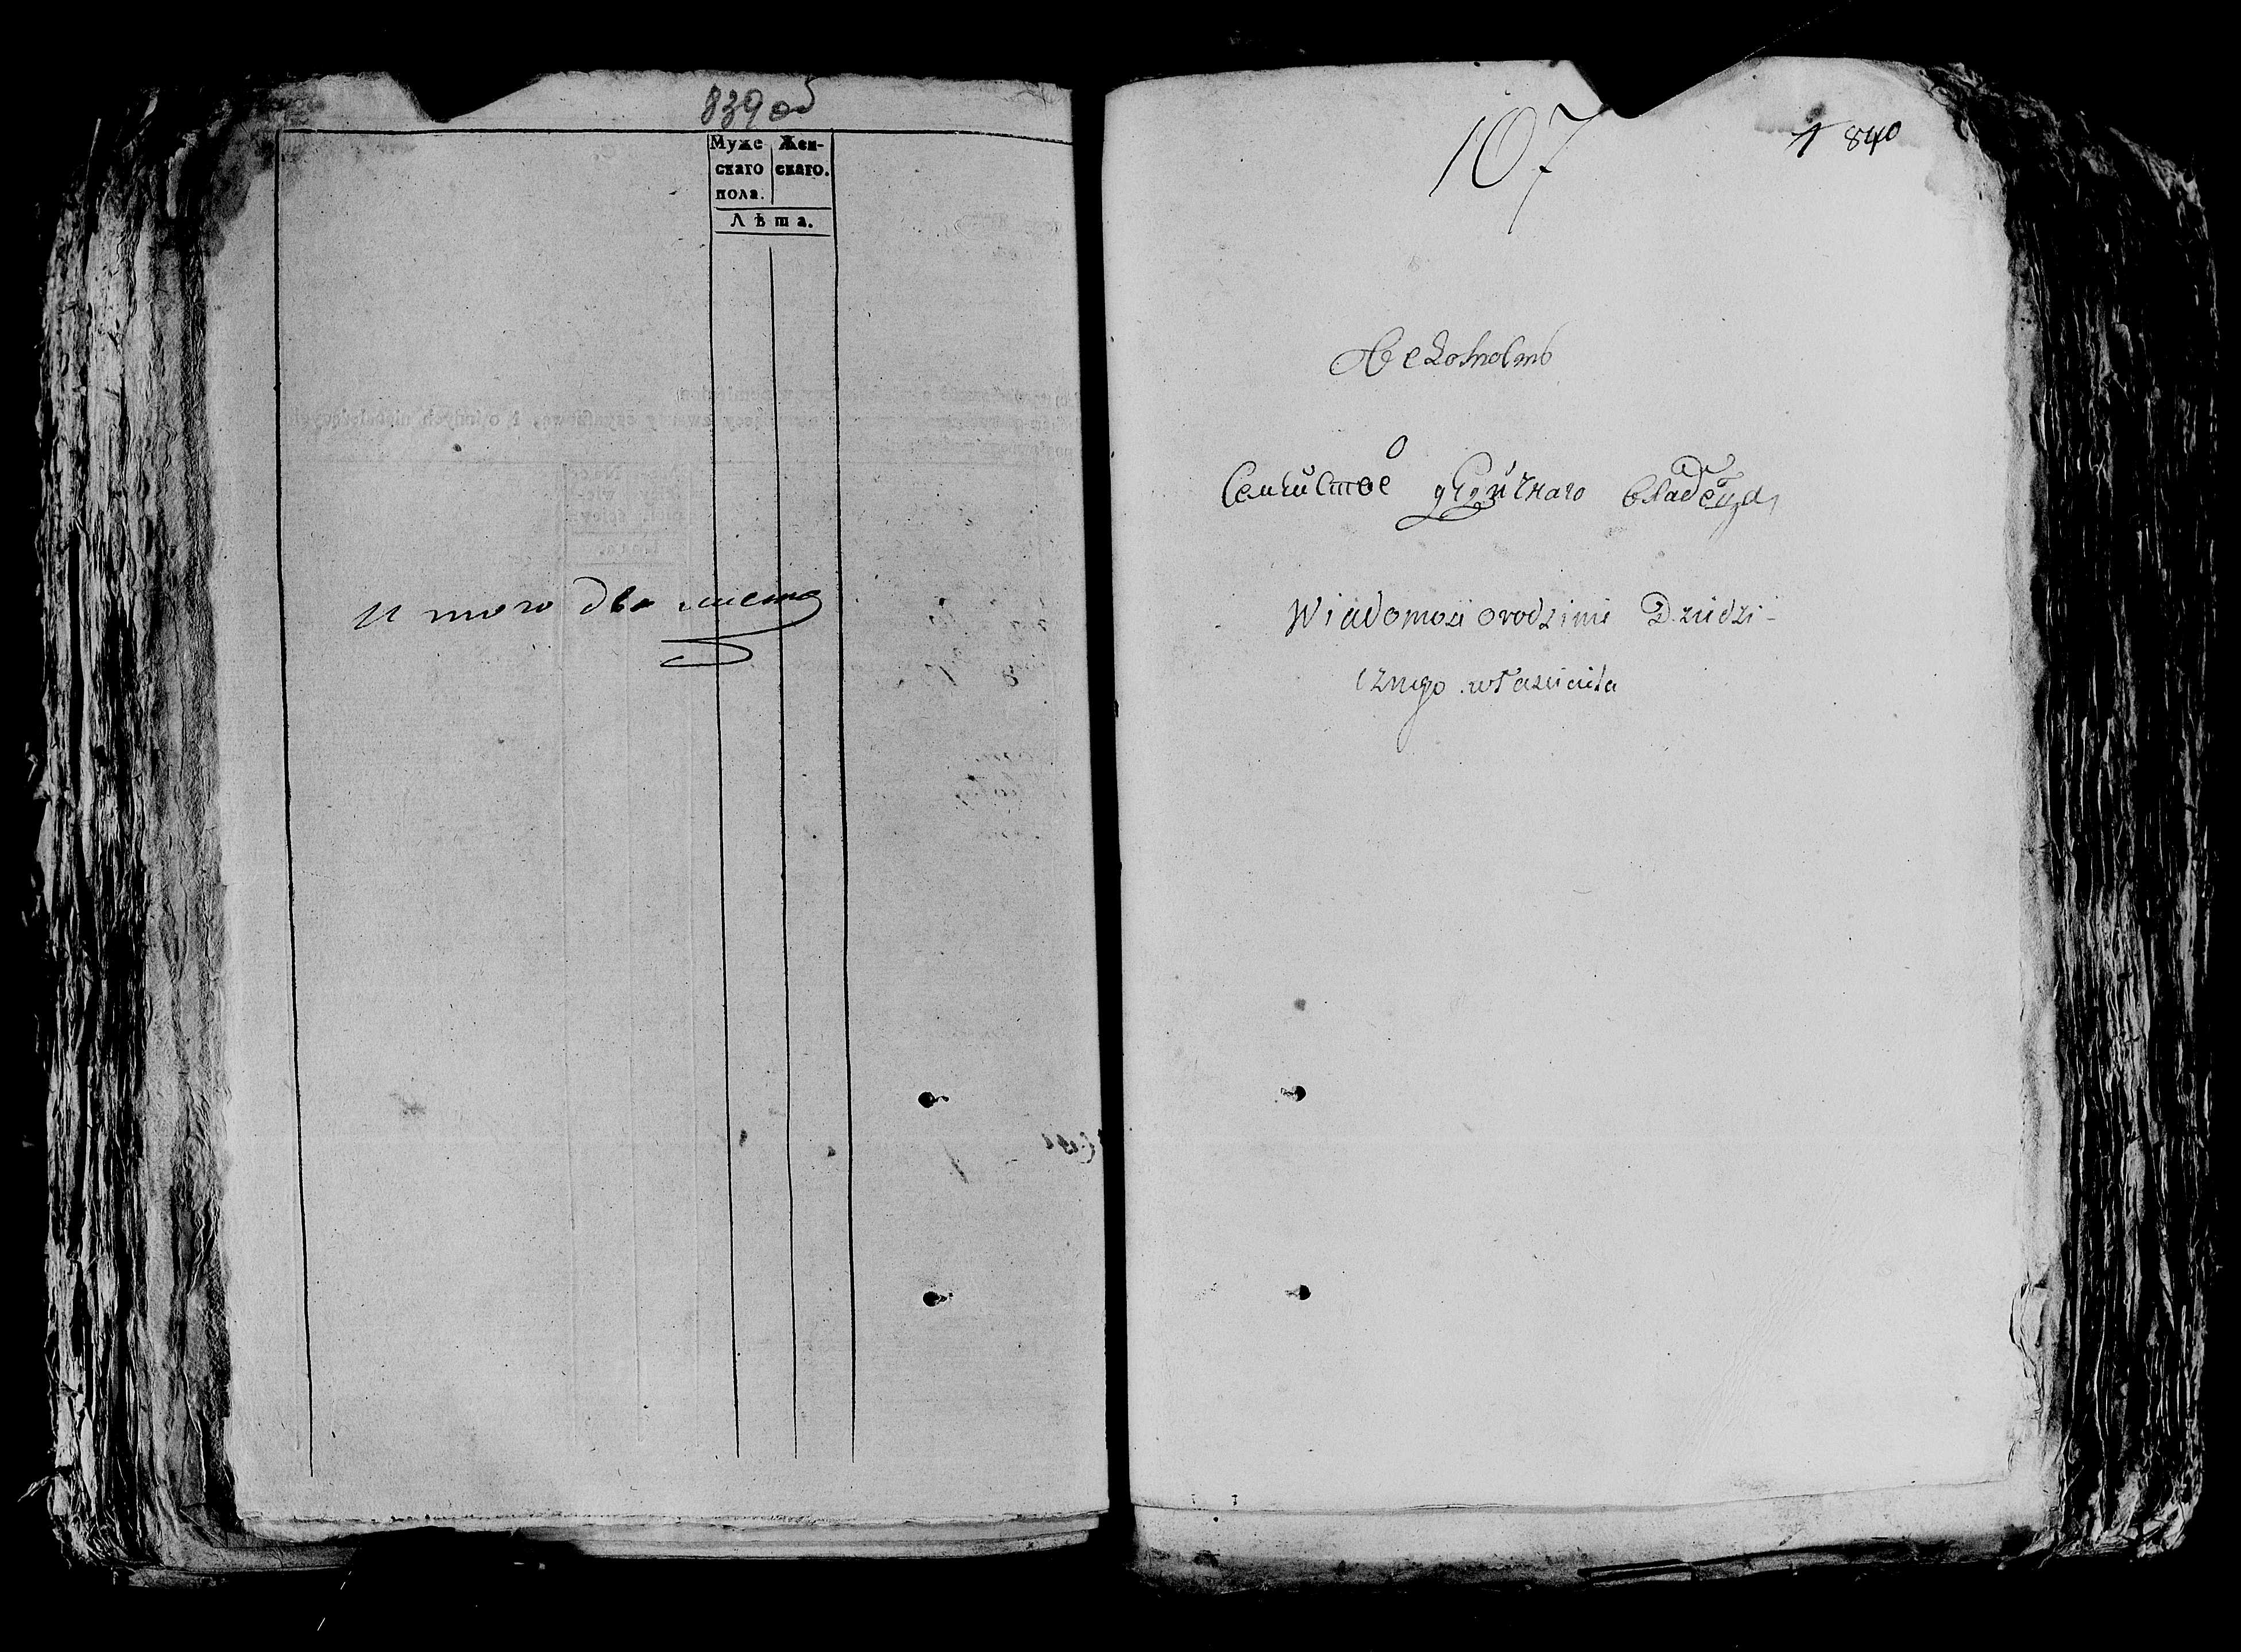 839 об
Муже Жен-
скаго скаго.
пола.
Лѣта.
Итого два листа
107
1 840
Ведомость
о
Семействе дѣдичнаго владельца
Wiadomosci o rodzinie Dziedzi-
cznego własciciela